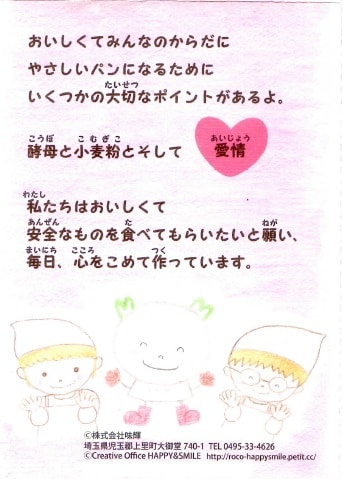 おいしくてみんなのからだに
やさしいパンになるために
たいせつ
いくつかの大切なポイントがあるよ。
こうぼ こむぎこ あいじょう
酵母と小麦粉とそして 愛情
わたし
私たちはおいしくて
あんぜん た ねが
安全なものを食べてもらいたいと願い、
まいにち こころ つく
毎日、心をこめて作っています。
©株式会社味輝
埼玉県児玉郡上里町大御堂 740-1 TEL 0495-33-4626
©Creative Office HAPPY&SMILE http://roco-happysmile.petit.cc/